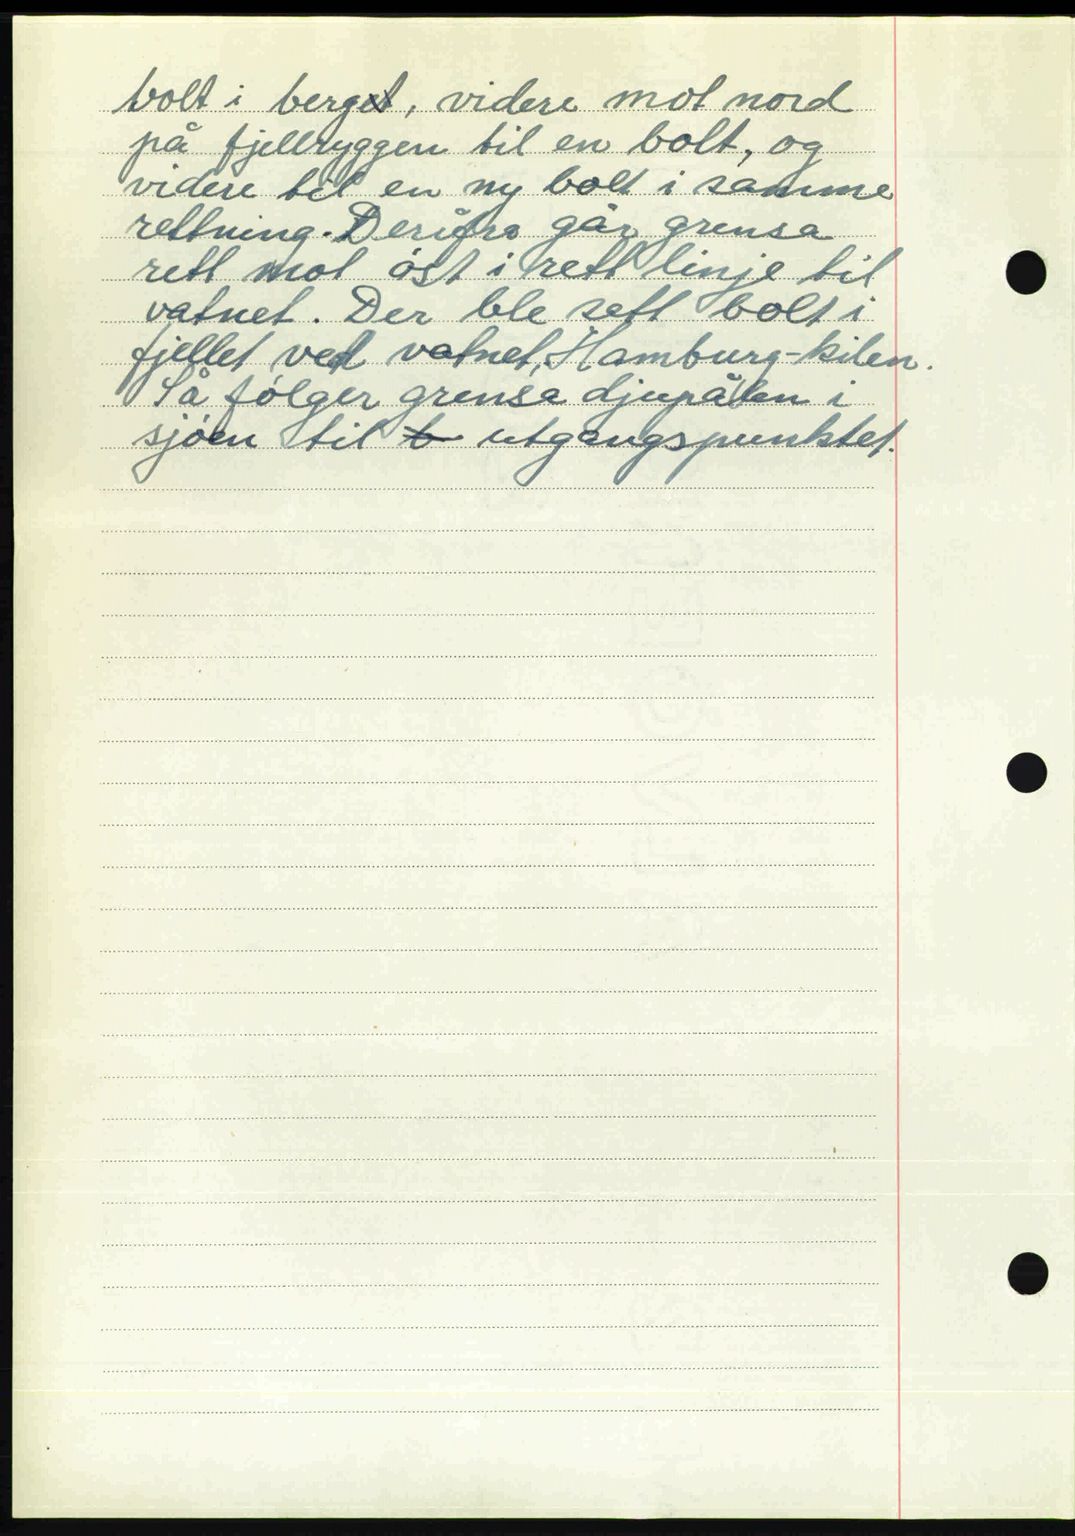 bolt i berget, videre mot nord
på fjellryggen til en bolt, og
videre til en ny bolt i samme
rettning. Derifra går grensa
rett mot öst i rett linje til
vatnet. Der ble sett bolt i
fjellet ved vatnet, Hamburg-kilen.
Så fölger grensa djupålen i
sjöen til utgangspunktet.